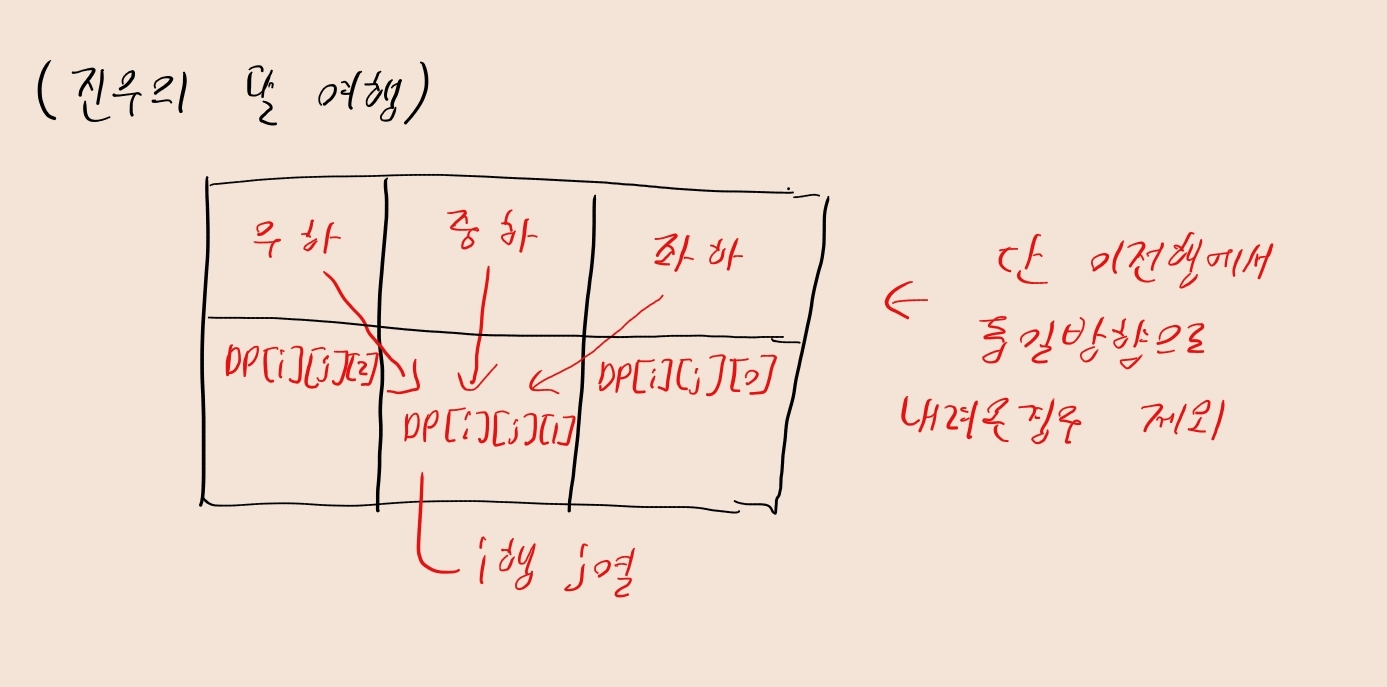 (진우의 달 여행)
우하 중하 좌하
DP[i][j][2] DP[i][j][1] DP[i][j][0]
i행 j열
← 단 이전행에서
동일방향으로
내려온경우 제외